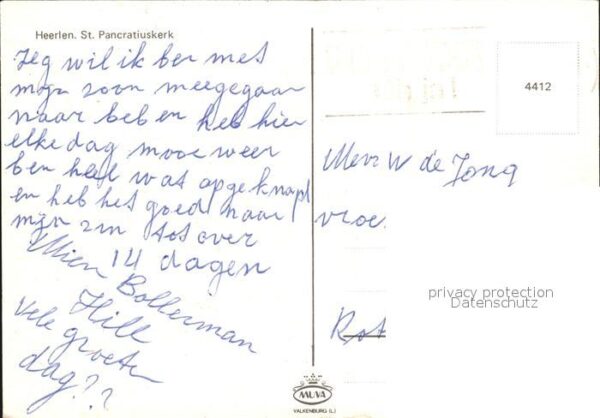 Heerlen. St. Pancratiuskerk
Zeg wil ik ben met
mijn zoon meegegaan
naar beb en heb hier
elke dag mooi weer
ben heel wat opgeknapt
en heb het goed naar
mijn zin tot over
14 dagen
Mien Bollerman
Hill
Vele groeten
dag??
4412
Mevr W de Jong
vroe
Rot
privacy protection
Datenschutz
MUVA
VALKENBURG (L.)